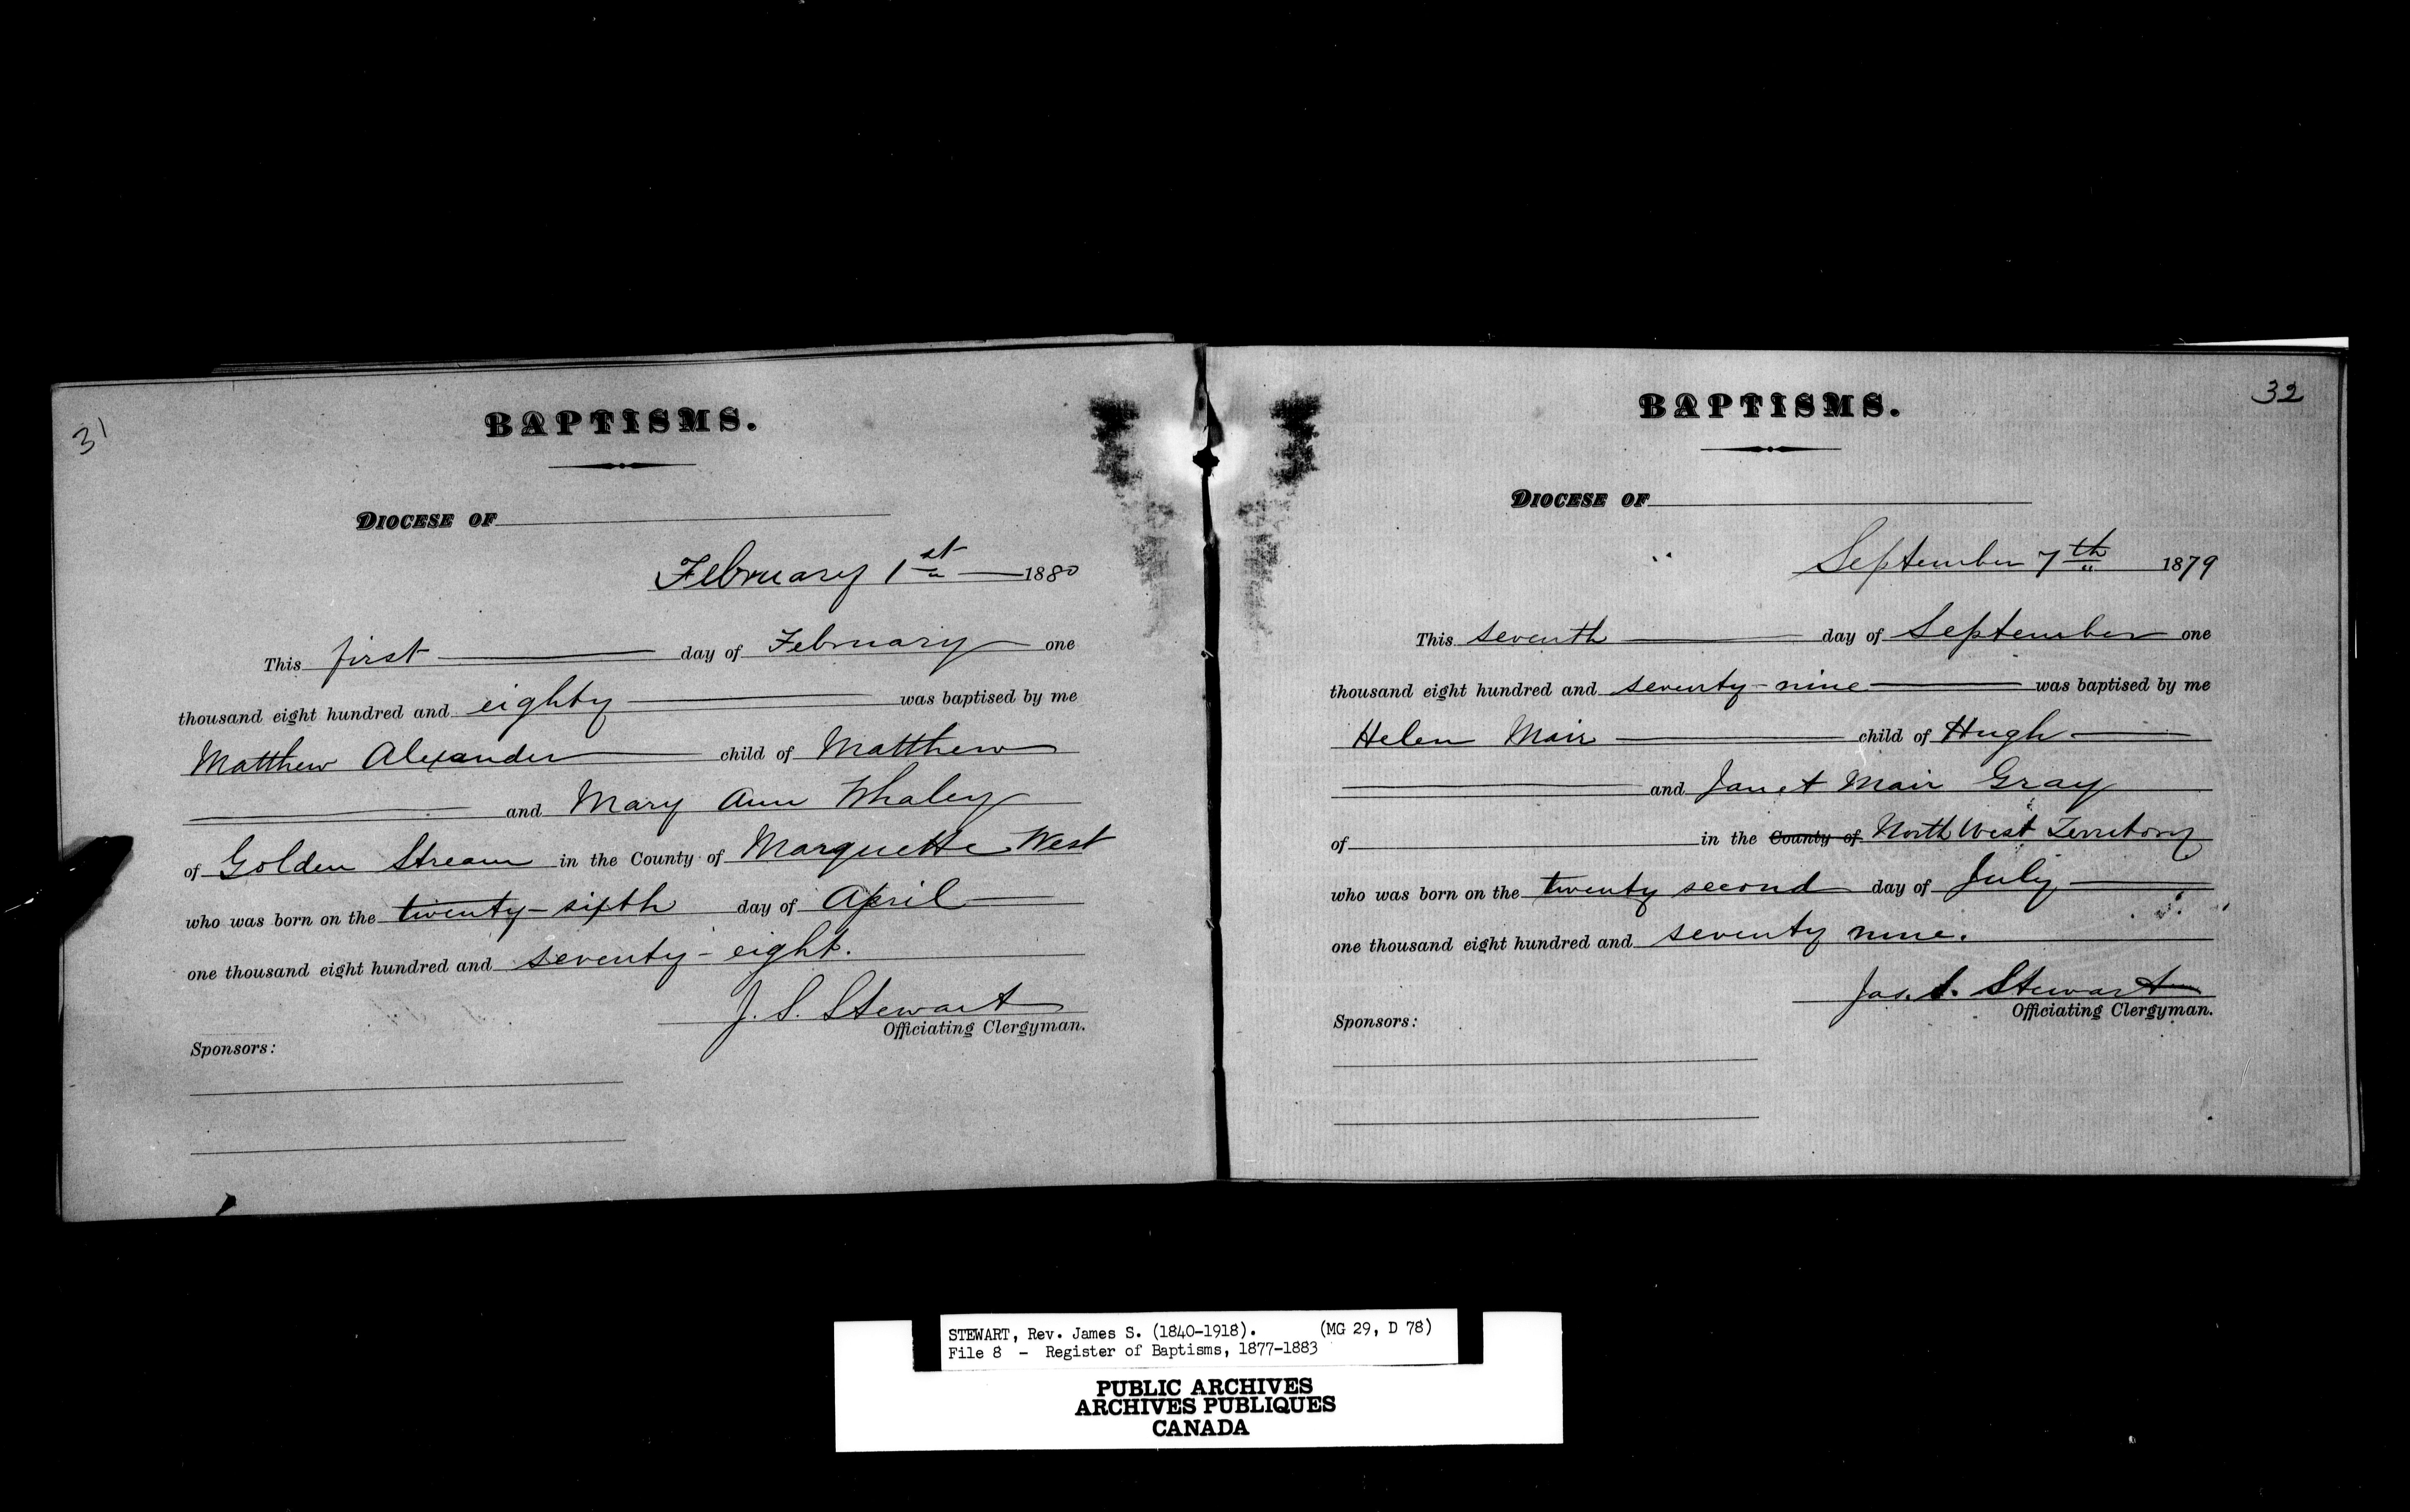 31
BAPTISMS.
DIOCESE OF
February 1st 1880
This first day of February one
thousand eight hundred and eighty was baptised by me
Matthew Alexander child of Matthew
and Mary Ann Whaley
of Golden Stream in the County of Marquette West
who was born on the twenty-sixth day of April
one thousand eight hundred and seventy-eight.
J. S. Stewart
Officiating Clergyman.
Sponsors:
32
BAPTISMS.
DIOCESE OF
September 7th 1879
This seventh day of September one
thousand eight hundred and seventy-nine was baptised by me
Helen Mair child of Hugh
and Janet Mair Gray
of in the County of North West Territory
who was born on the twenty second day of July
one thousand eight hundred and seventy nine.
Jas. S. Stewart
Officiating Clergyman.
Sponsors:
STEWART, Rev. James S. (1840-1918). (MG 29, D 78)
File 8 - Register of Baptisms, 1877-1883
PUBLIC ARCHIVES
ARCHIVES PUBLIQUES
CANADA